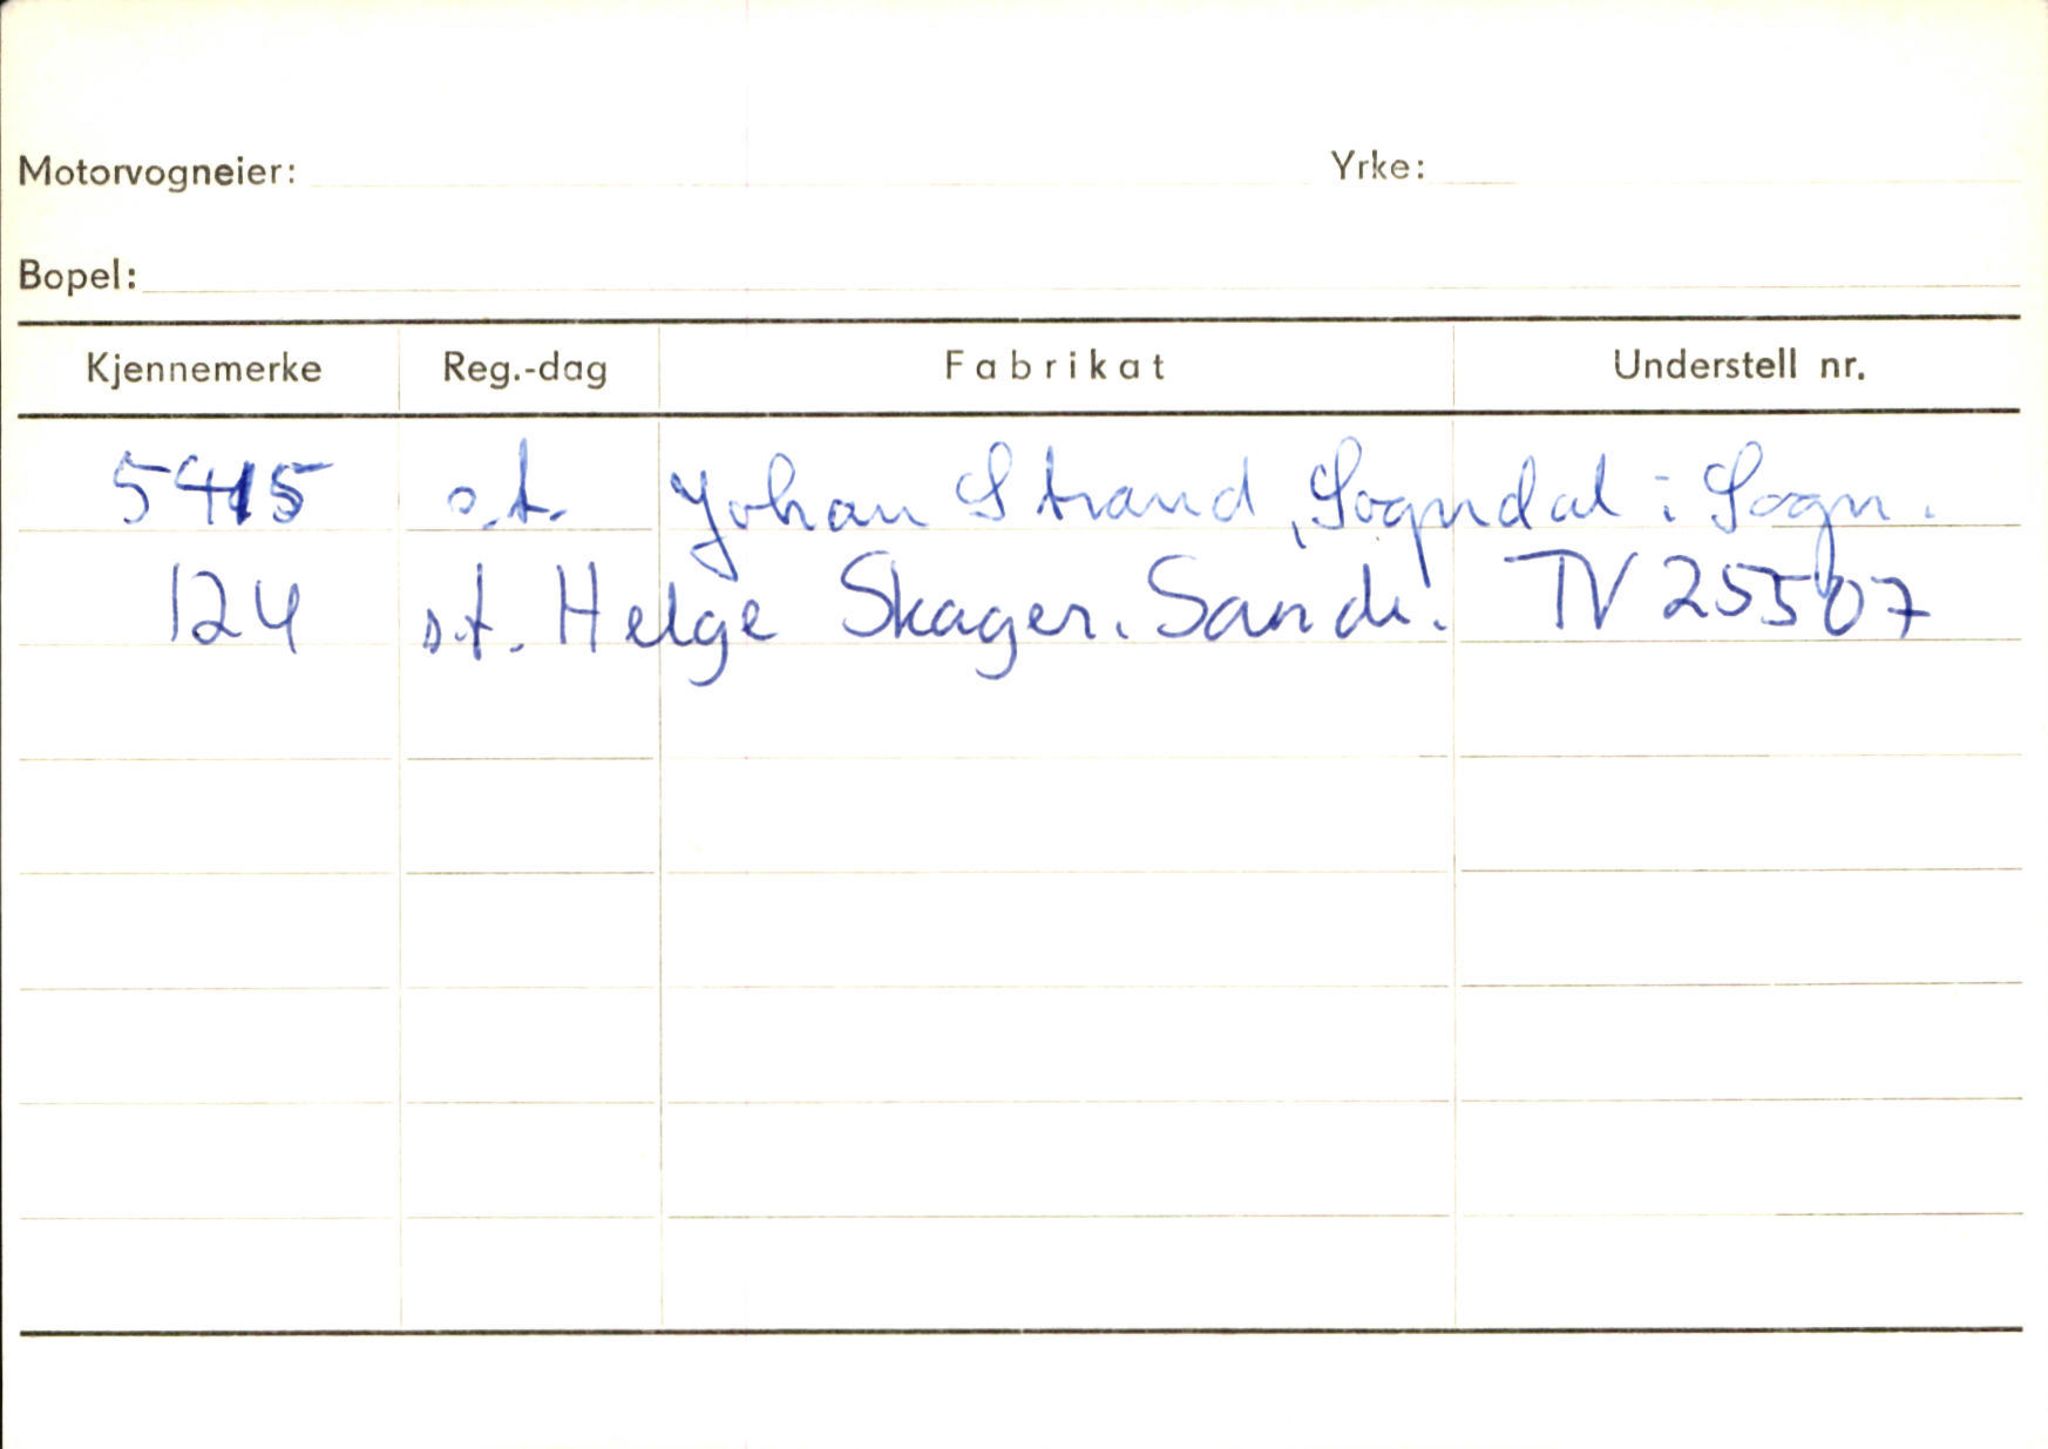 Motorvogneier: Yrke:
Bopel:
Kjennemerke Reg.-dag Fabrikat Understell nr.
5415 s.t. Johan Strand, Sogndal i Sogn.
124 s.t. Helge Skager. Sande. TV 25507